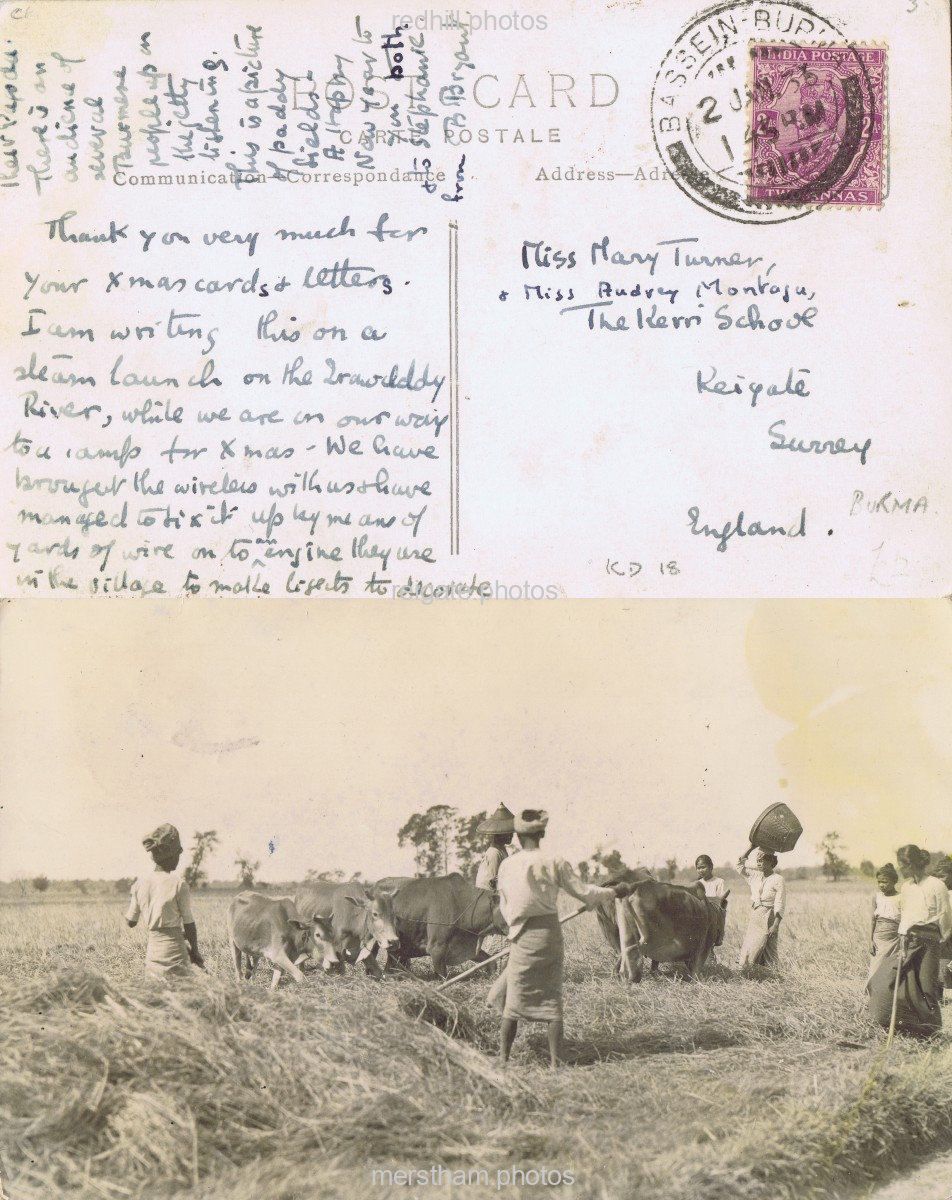 redhill.photos
POST CARD
CARTE POSTALE
Communication—Correspondance
Address—Adresse
BASSEIN-BURMA
2 JAN 36
INDIA POSTAGE
2As
TWO ANNAS
Thank you very much for
your Xmas cards & letters.
I am writing this on a
steam launch on the Irawdddy
River, while we are on our way
to a camp for Xmas - We have
brought the wireless with us & have
managed to fix it up by means of
yards of wire on to an engine they use
in the village to make lights to decorate
their
There is an
audience of
several
Burmese
people up in
the jetty
listening.
This is a picture
of paddy
fields.
A Happy
New Year to
you both
& to Stephanie
from B Bryant
Miss Mary Turner,
& Miss Audrey Montagu,
The Kerri School
Reigate
Surrey
England.
BURMA.
KD 18
reigate.photos
merstham.photos